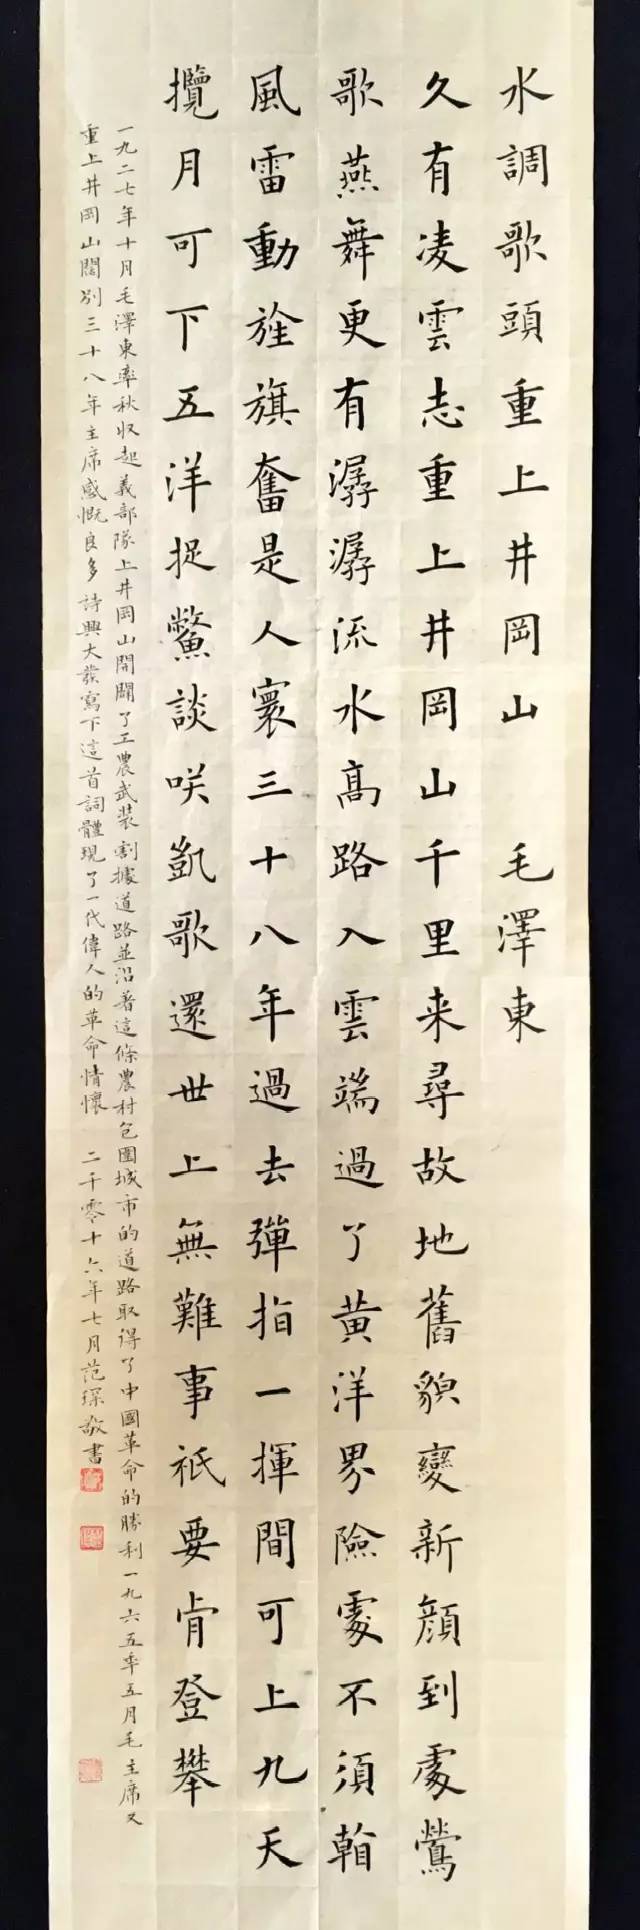 水調歌頭重上井岡山 毛澤東
久有凌雲志重上井岡山千里来尋故地舊貌變新顔到處鶯
歌燕舞更有潺潺流水高路入雲端過了黄洋界險處不須看
風雷動旌旗奮是人寰三十八年過去彈指一揮間可上九天
攬月可下五洋捉鱉談咲凱歌還世上無難事祇要肯登攀
一九二七年十月毛澤東率秋收起義部隊上井岡山開闢了工農武裝割據道路並沿著這條農村包圍城市的道路取得了中國革命的勝利一九六五年五月毛主席又
重上井岡山闊别三十八年主席感慨良多詩興大發寫下這首詞體現了一代偉人的革命情懷 二千零十六年七月范琛敬書